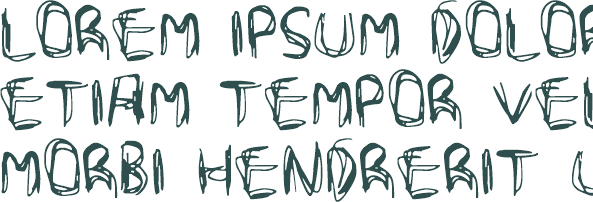 LOREM IPSUM DOLOR
ETIAM TEMPOR VEL
MORBI HENDRERIT U